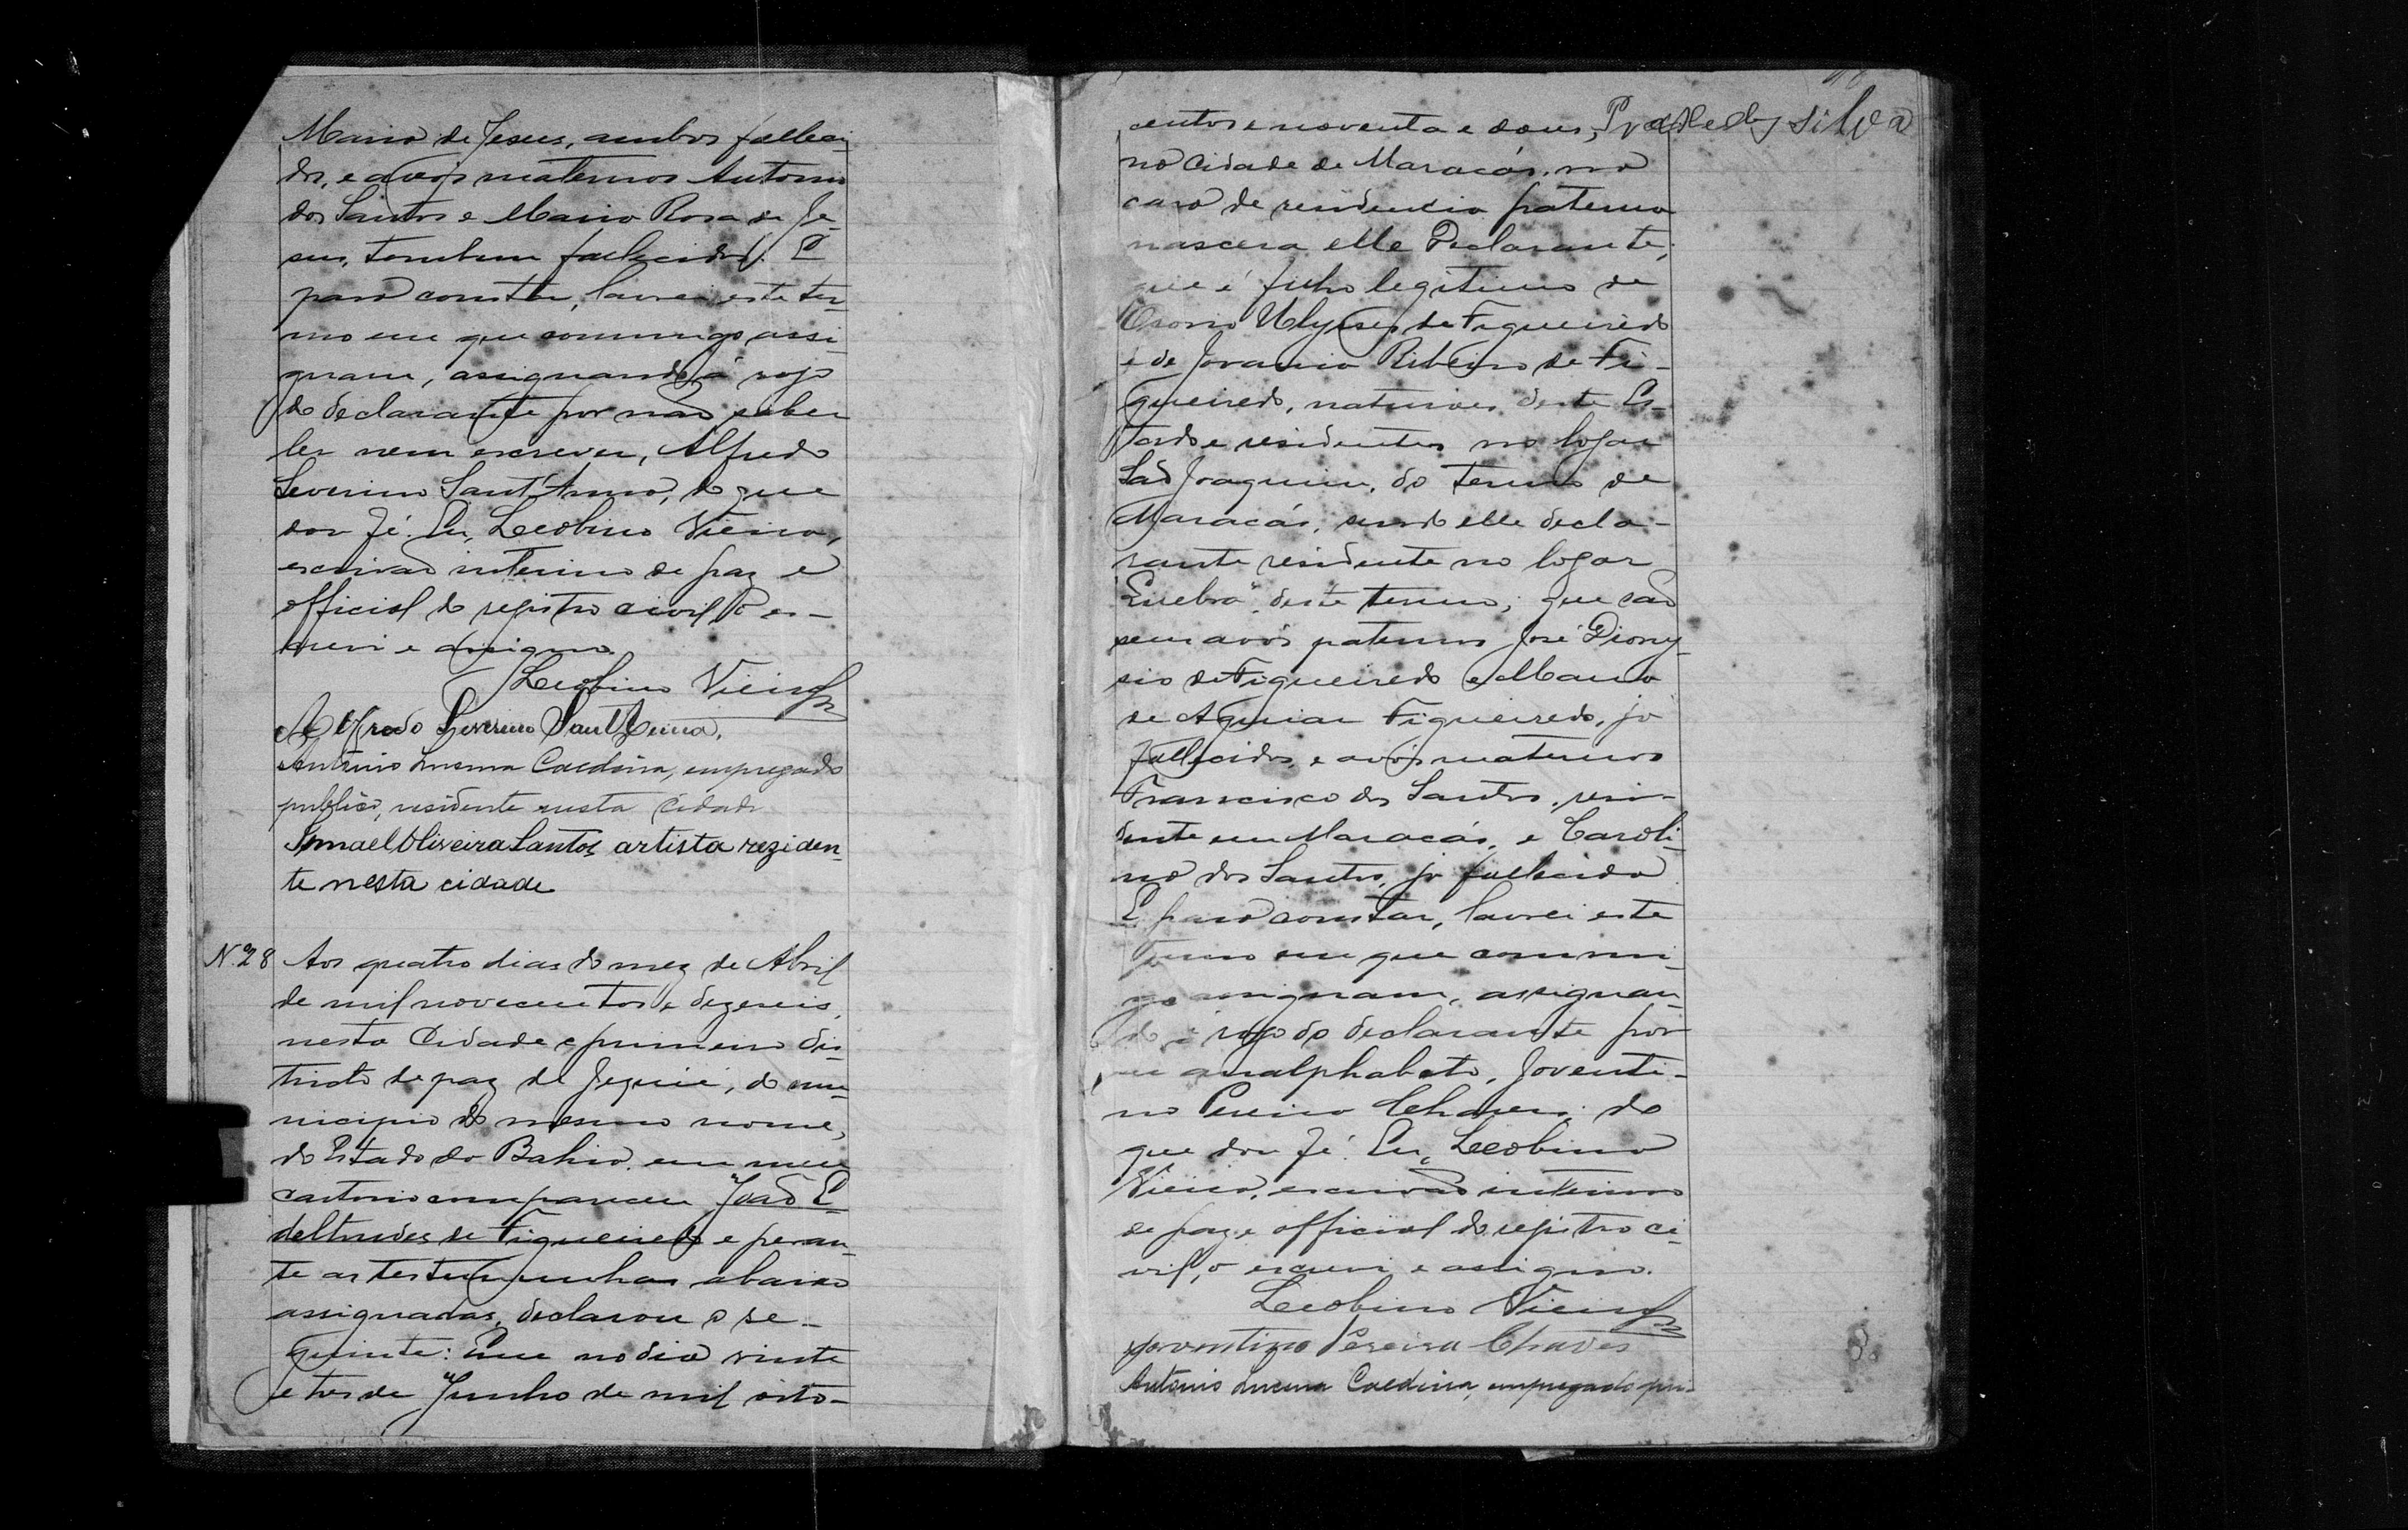 Maria de Jesus, ambos falleci-
dos, e avós maternos Antonio
dos Santos e Maria Rosa de Je-
sus, tambem fallecidos. E
para constar, lavrei este ter-
mo em que commigo assi-
gnam, assignando á rogo
do declarante por não saber
ler nem escrever, Alfredo
Severino Sant'Anna, do que
dou fé. Eu, Leobino Vieira,
escrivão interino de paz e
official do registro civil o es-
crevi e assigno.
Leobino Vieira
Alfredo Severino Sant'Anna.
Antonio Lucena Caldeira, empregado
publico, residente nesta cidade
Ismael Oliveira Santos artista reziden-
te nesta cidade
N. 28 Aos quatro dias do mez de Abril
de mil novecentos e dezeseis,
nesta Cidade e primeiro dis-
tricto de paz de Jequié, do mu-
nicipio do mesmo nome,
do Estado da Bahia, em meu
cartorio compareceu João E-
deltrudes de Figueiredo e peran-
te as testemunhas abaixo
assignadas, declarou o se-
guinte: Que no dia vinte
e tres de Junho de mil oito-
centos e noventa e dous, silva
na Cidade de Maracás, na
casa de residencia paterna
nascera elle Declarante,
que é filho legitimo de
Osorio Ulysses de Figueiredo
e de Jovania Ribeiro de Fi-
gueiredo, naturaes deste Es-
tado e residentes no logar
São Joaquim, do termo de
Maracás, sendo elle decla-
rante residente no logar
deste termo; que são
seus avós paternos José Diony-
sio de Figueiredo e Maria
de Aguiar Figueiredo, já
fallecidos, e avós maternos
Francisco dos Santos, resi-
dente em Maracás, e Caroli-
na dos Santos, já fallecida.
E para constar, lavrei este
termo em que commi-
go assignam, assignan-
do á rogo do declarante por
analphabeto, Joventi-
no Pereira Chaves, do
que dou fé. Eu, Leobino
Vieira, escrivão interino
de paz e official do registro ci-
vil, o escrevi e assigno.
Leobino Vieira
Joventino Pereira Chaves
Antonio Lucena Caldeira, empregado pu-